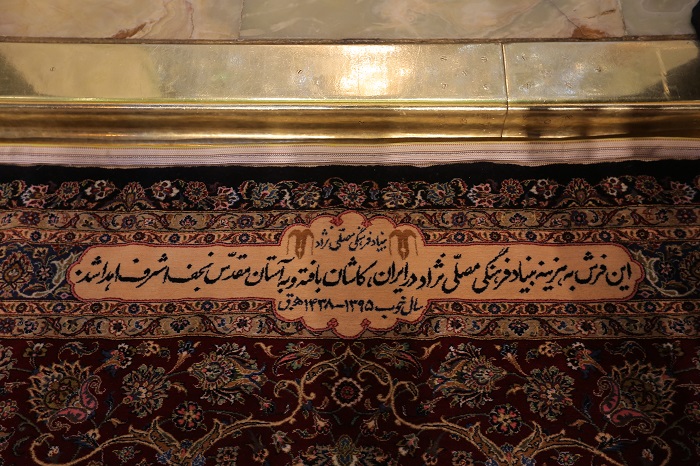 بنیاد فرهنگی مصلّی نژاد
این فرش به هزینه بنیاد فرهنگی مصلّی نژاد در ایران، کاشان بافته و به آستان مقدّس نجف اشرف اهدا شد.
۱۳۹۵-۱۴۳۸ هـ ق